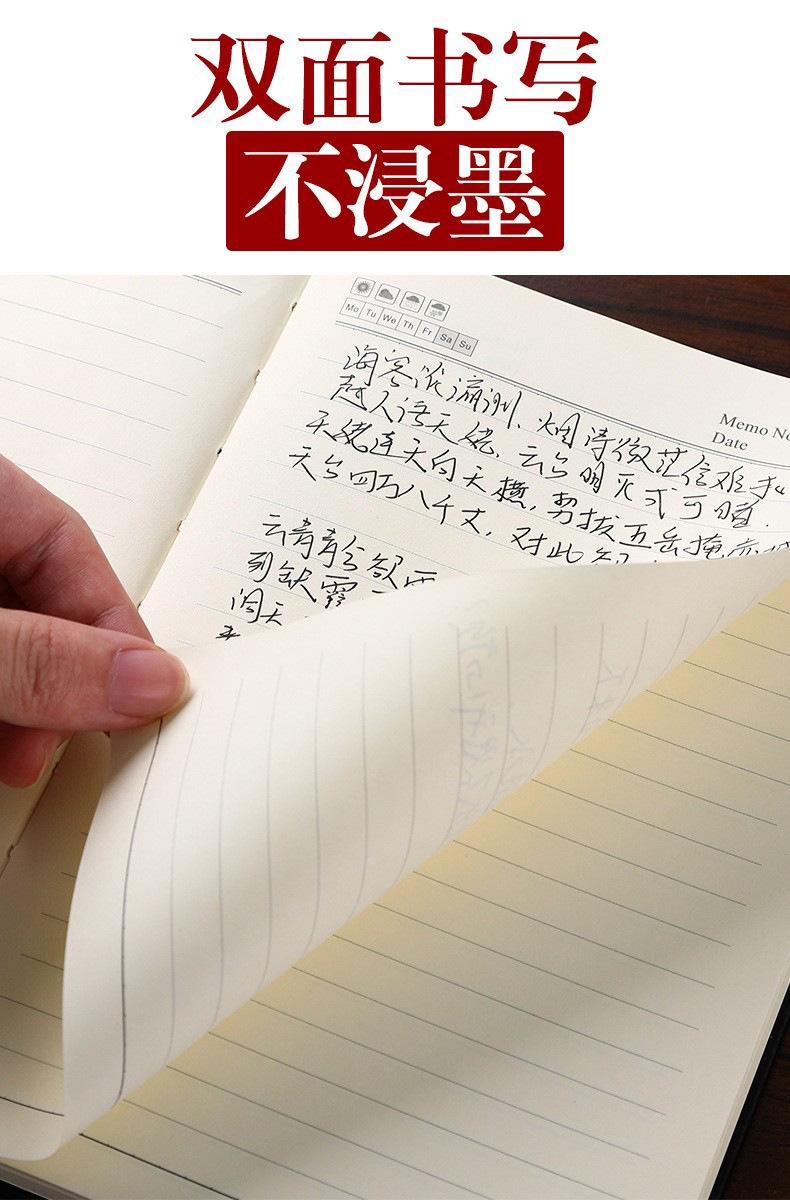 双面书写
不浸墨
Mo Tu We Th Fr Sa Su
Memo No
Date
海客谈瀛洲、烟涛微茫信难求
越人语天姥、云霓明灭或可睹.
天姥连天向天横,势拔五岳掩赤城
天台四万八千丈,对此欲
云青青兮欲雨
列缺霹
洞天